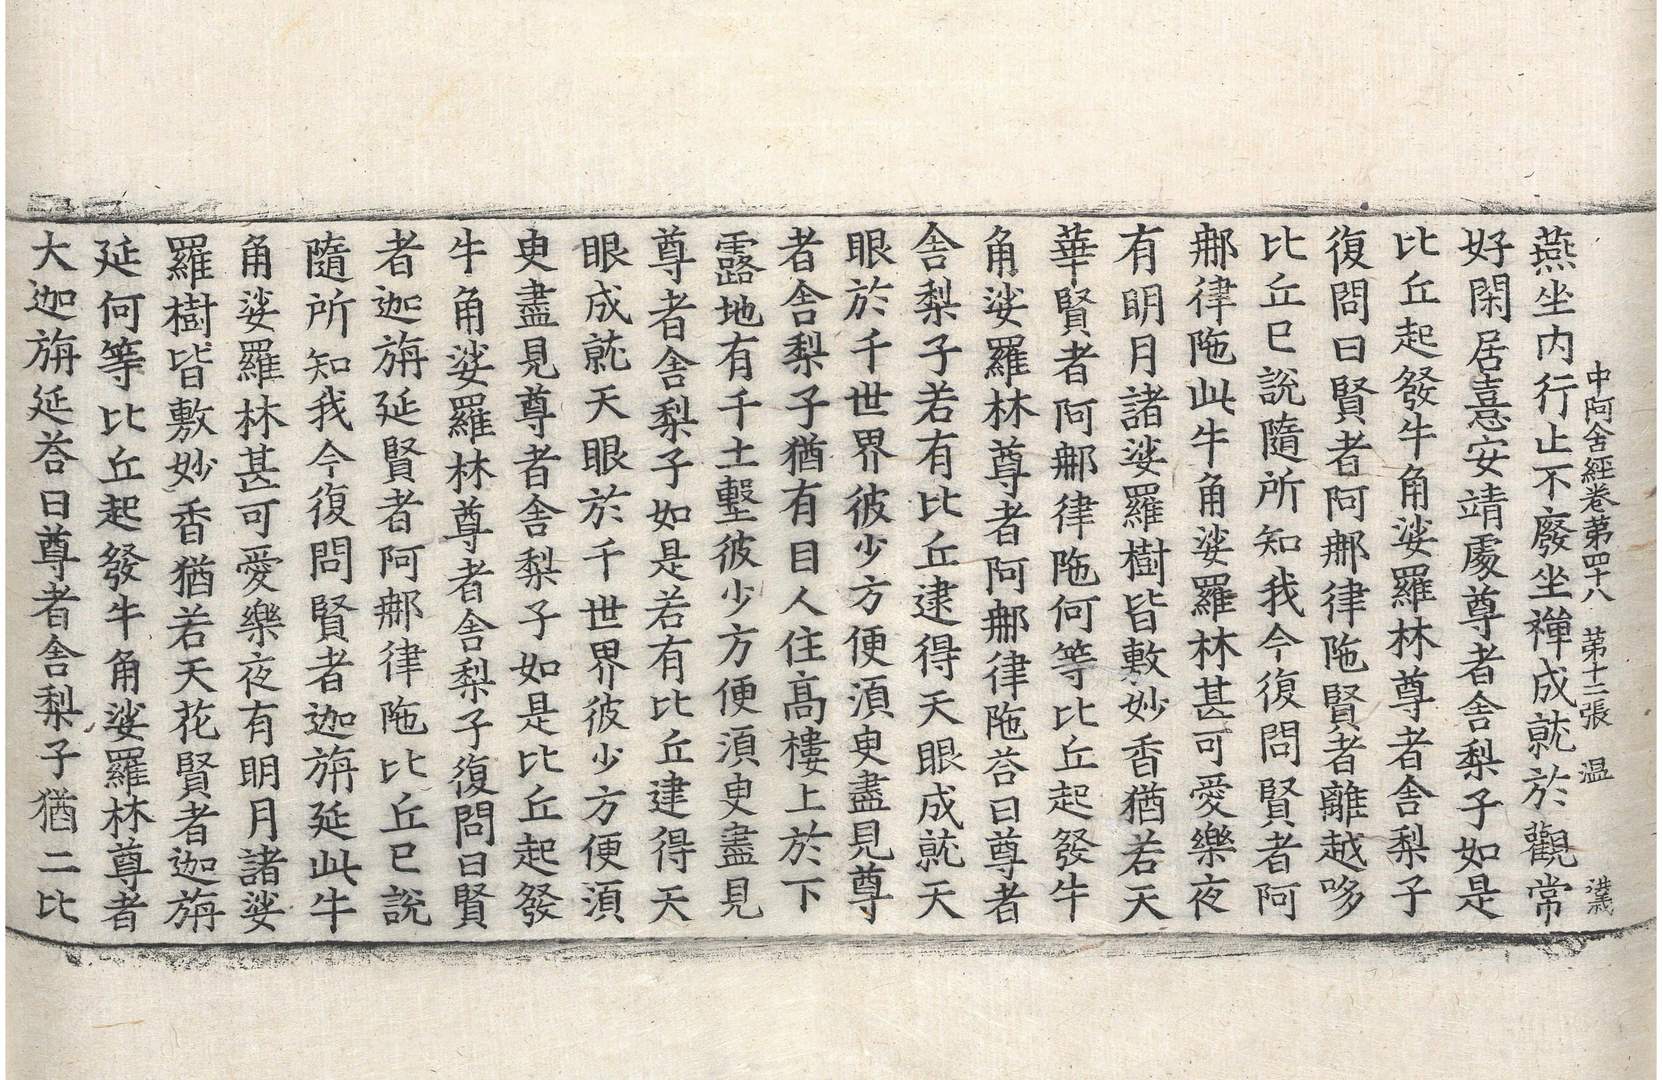 中阿含經卷第四十八 第十二張 温
燕坐内行止不廢坐禪成就於觀常
好閑居憙安靖處尊者舎梨子如是
比丘起發牛角娑羅林尊者舎梨子
復問曰賢者阿那律陁賢者離越哆
比丘已說隨所知我今復問賢者阿
那律陁此牛角娑羅林甚可愛樂夜
有明月諸娑羅樹皆敷妙香猶若天
華賢者阿那律陁何等比丘起發牛
角娑羅林尊者阿那律陁荅曰尊者
舎梨子若有比丘逮得天眼成就天
眼於千世界彼少方便須臾盡見尊
者舎梨子猶有目人住高樓上於下
露地有千土墼彼少方便須臾盡見
尊者舎梨子如是若有比丘逮得天
眼成就天眼於千世界彼少方便須
臾盡見尊者舎梨子如是比丘起發
牛角娑羅林尊者舎梨子復問曰賢
者迦旃延賢者阿那律陁比丘已說
隨所知我今復問賢者迦旃延此牛
角娑羅林甚可愛樂夜有明月諸娑
羅樹皆敷妙香猶若天花賢者迦旃
延何等比丘起發牛角娑羅林尊者
大迦旃延荅曰尊者舎梨子猶二比